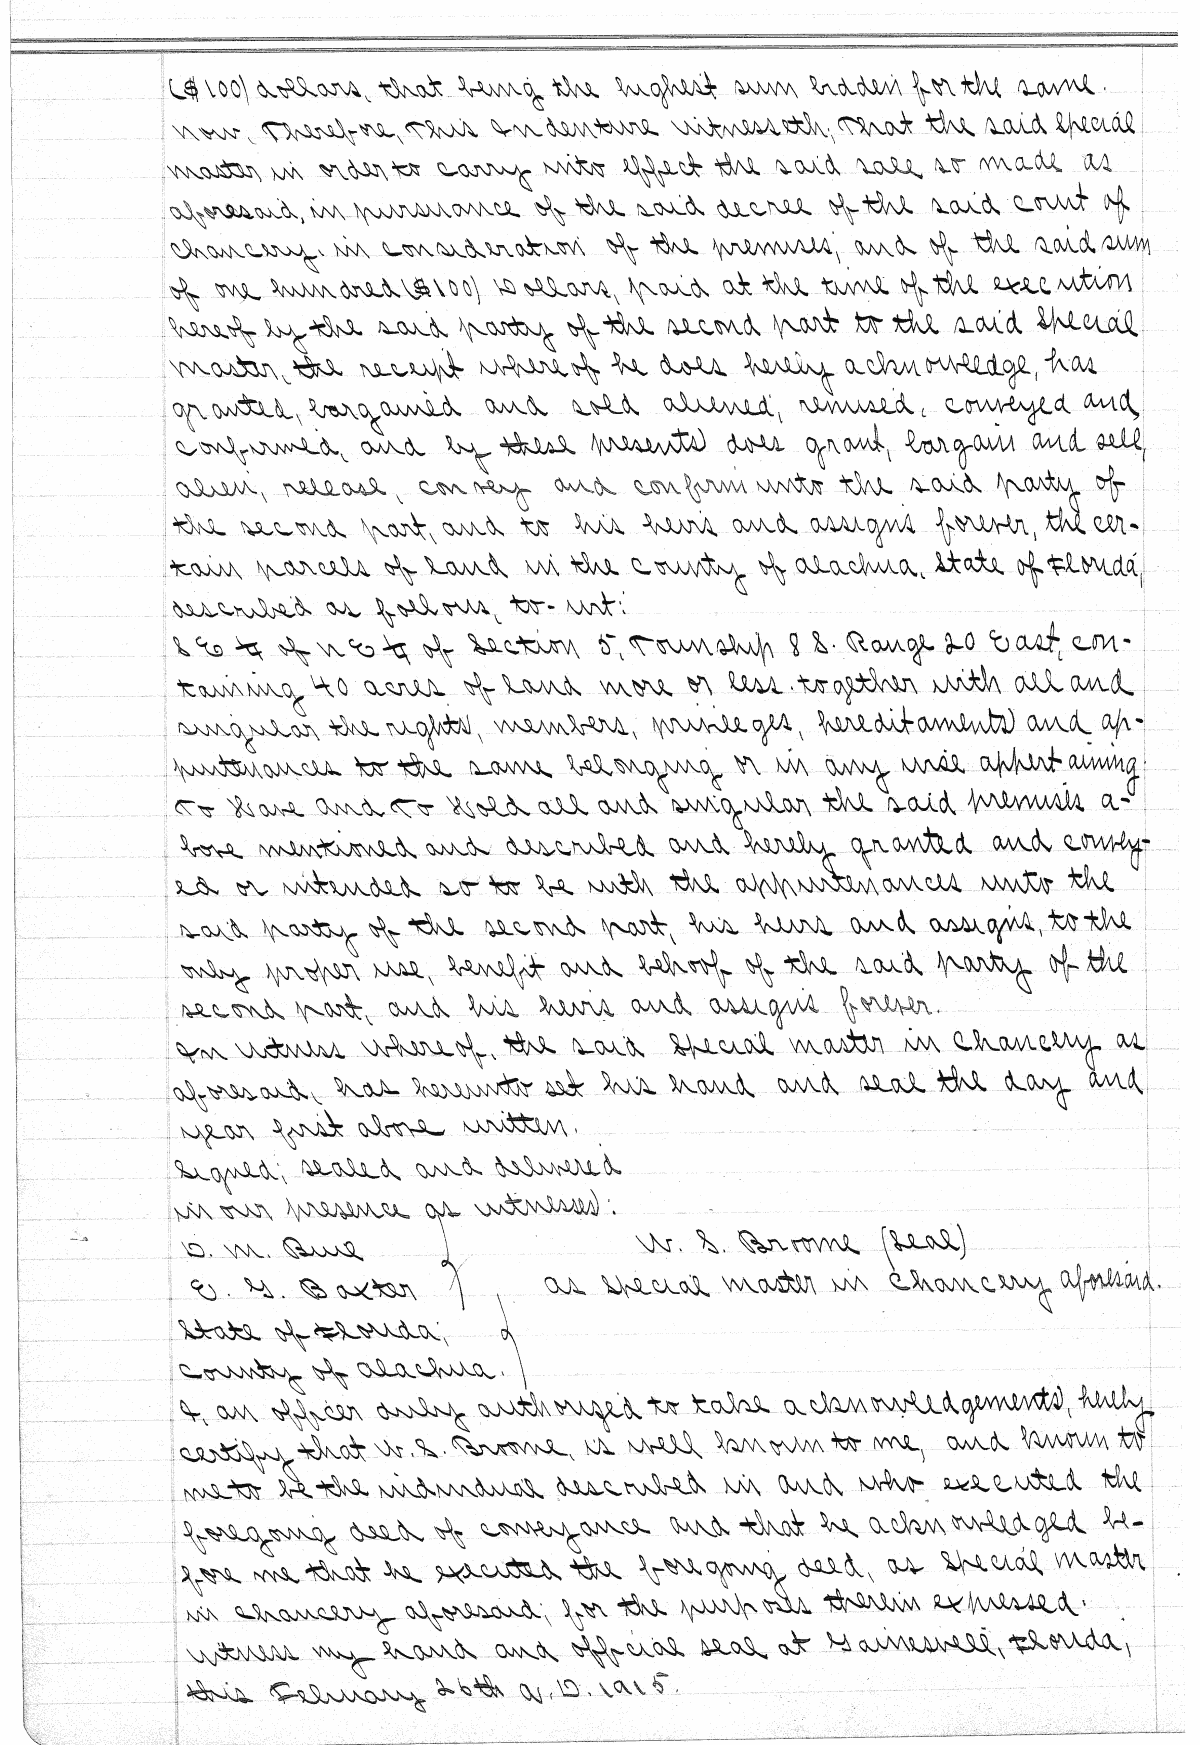 ($100) dollars, that being the highest sum bidden for the same.
Now, Therefore, This Indenture witnesseth, That the said Special
Master in order to carry into effect the said sale so made as
aforesaid, in pursuance of the said decree of the said Court of
Chancery, in consideration of the premises, and of the said sum
of one hundred ($100) Dollars, paid at the time of the execution
hereof by the said party of the second part to the said Special
Master, the receipt whereof he does hereby acknowledge, has
granted, bargained and sold aliened, remised, conveyed and
confirmed, and by these presents does grant, bargain and sell,
alien, release, convey and confirm unto the said party of
the second part, and to his heirs and assigns forever, the cer-
tain parcels of land in the County of Alachua, State of Florida,
described as follows, to-wit:
S E ¼ of N E ¼ of Section 5, Township 8 S. Range 20 East, con-
taining 40 acres of land more or less. together with all and
singular the rights, members, privileges, hereditaments and ap-
purtenances to the same belonging or in any wise appertaining
To Have and To Hold all and singular the said premises a-
bove mentioned and described and hereby granted and convey-
ed or intended so to be with the appurtenances unto the
said party of the second part, his heirs and assigns, to the
only proper use, benefit and behoof of the said party of the
second part, and his heirs and assigns forever.
In witness whereof, the said Special Master in Chancery as
aforesaid, has hereunto set his hand and seal the day and
year first above written.
Signed, sealed and delivered
in our presence as witnesses:
D. M. Buie W. S. Broome (Seal)
E. G. Baxter as Special Master in Chancery aforesaid.
State of Florida,
County of Alachua.
I, an officer duly authorized to take acknowledgements, hereby
certify that W. S. Broome, is well known to me, and known to
me to be the individual described in and who executed the
foregoing deed of conveyance and that he acknowledged be-
fore me that he executed the foregoing deed, as Special Master
in Chancery aforesaid, for the purposes therein expressed.
Witness my hand and official seal at Gainesville, Florida,
this February 26th A. D. 1915.